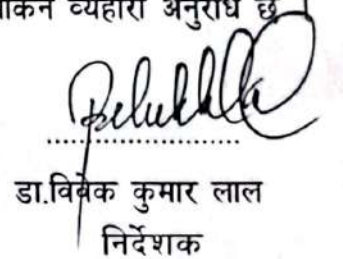 व्यहोरा अनुरोध छ
डा.विवेक कुमार लाल
निर्देशक